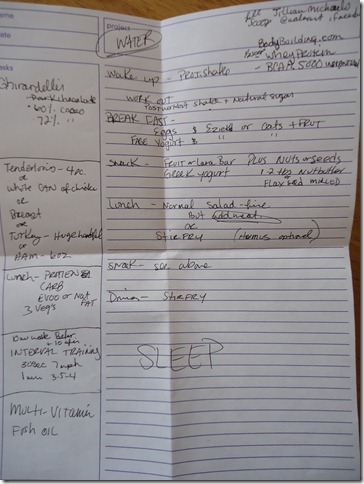 project
WATER
name
date
tasks
Ghirardelli's
Dark chocolate
60% cocoa
72% "
Jillian Michaels
BodyBuilding.com
Whey Protein
BCAA 5000
Wake up - Prot. shake
WORK OUT
Post workout shake + Natural sugar
BREAKFAST -
Eggs & Ezekiel or oats + FRUIT
FAGE Yogurt & " "
SNACK - Fruit or Lara Bar PLUS NUTS or seeds
Greek yogurt 1-2 tbs Nutbutter
Flaxseed milled
Lunch - Normal Salad - fine
But add meat
or
STIR FRY (Humus optional)
SNACK - see above
Dinner - Stir FRY
SLEEP
Tenderloins - 4oz
or
whole CAN of chicken
or
Breast
or
TURKEY - Huge handful
or
HAM - 6oz
Lunch - PROTEIN
CARB
EVOO or Nut FAT
3 Veg's
INTERVAL TRAINING
30sec 7mph
1 min 3.5-4
MULTI-VITAMIN
FISH OIL